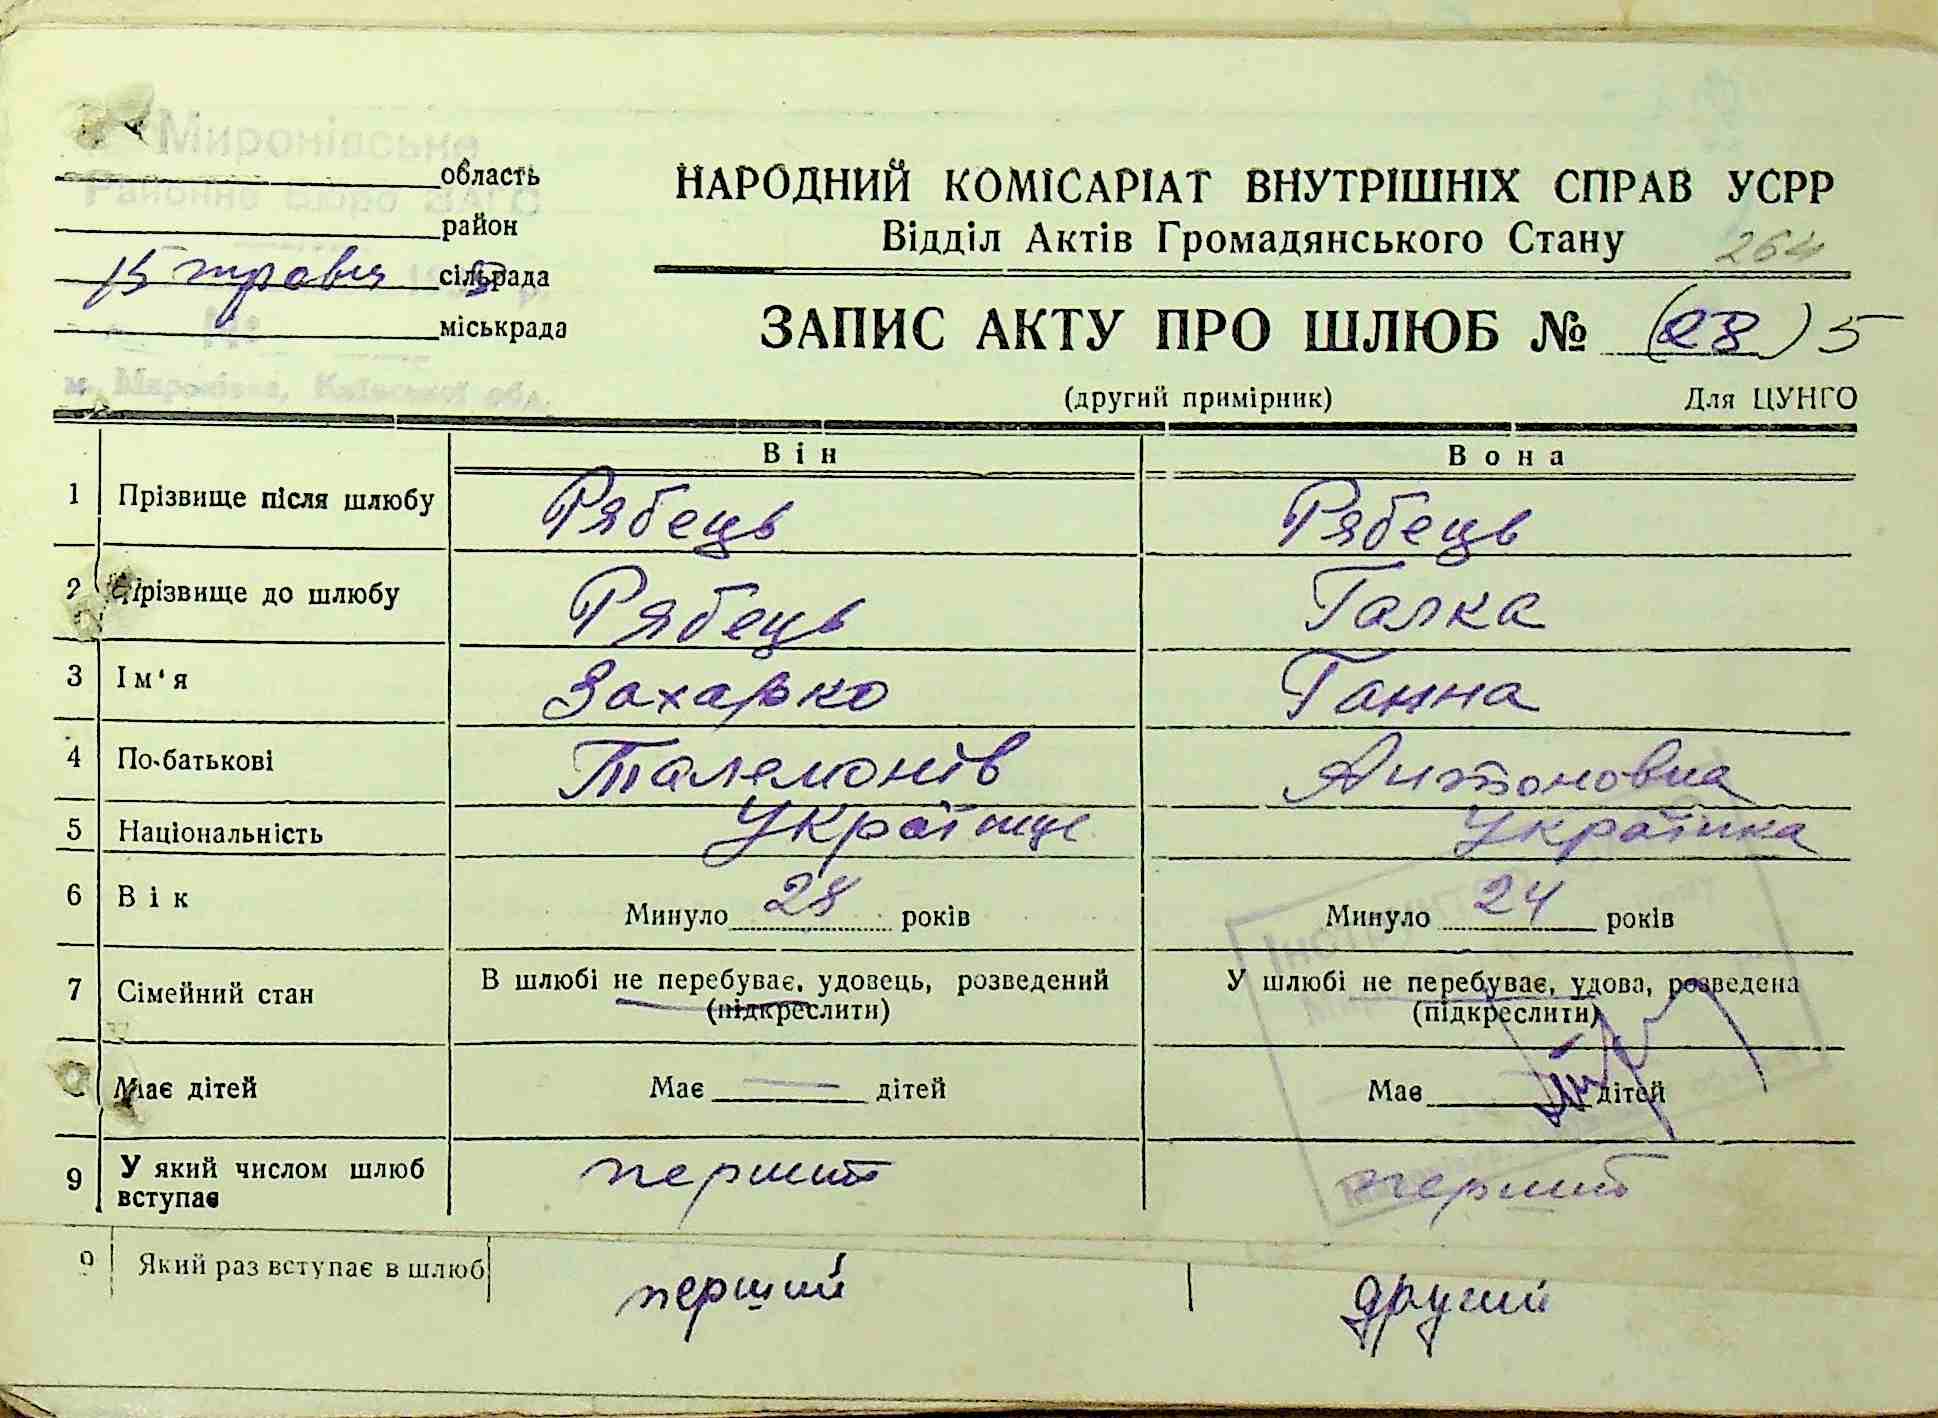 Миронівське
область
Районне Бюро ЗАГС
район
15 травня сільрада
міськрада
м. Миронівка, Київської обл.
НАРОДНИЙ КОМІСАРІАТ ВНУТРІШНІХ СПРАВ УСРР
Відділ Актів Громадянського Стану 264
ЗАПИС АКТУ ПРО ШЛЮБ № (28) 5
(другий примірник) Для ЦУНГО
Він Вона
1 Прізвище після шлюбу Рябець Рябець
2 Прізвище до шлюбу Рябець Галка
3 Ім'я Захарко Ганна
4 По-батькові Талемонів Антоновна
5 Національність Українце Українка
6 Вік Минуло 28 років Минуло 24 років
7 Сімейний стан В шлюбі не перебуває, удовець, розведений У шлюбі не перебуває, удова, розведена
(підкреслити) (підкреслити)
Має дітей Має — дітей Має дітей
9 У який числом шлюб перший перший
вступає
9 Який раз вступає в шлюб перший другий